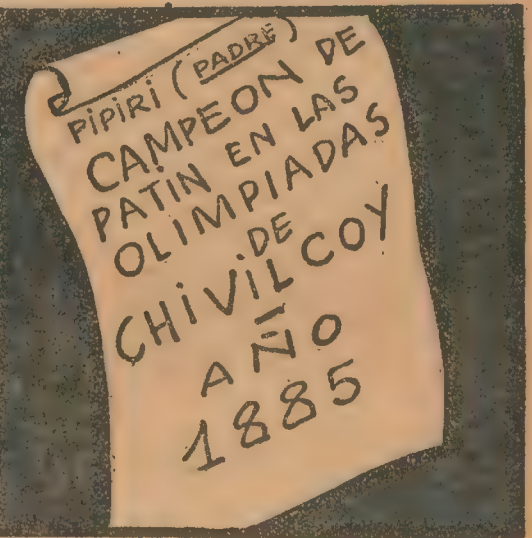 PiPiRi (PADRE)
CAMPEON DE
PATiN EN LAS
OLiMPIADAS
DE
CHiViLCOY
–
AÑO
1885